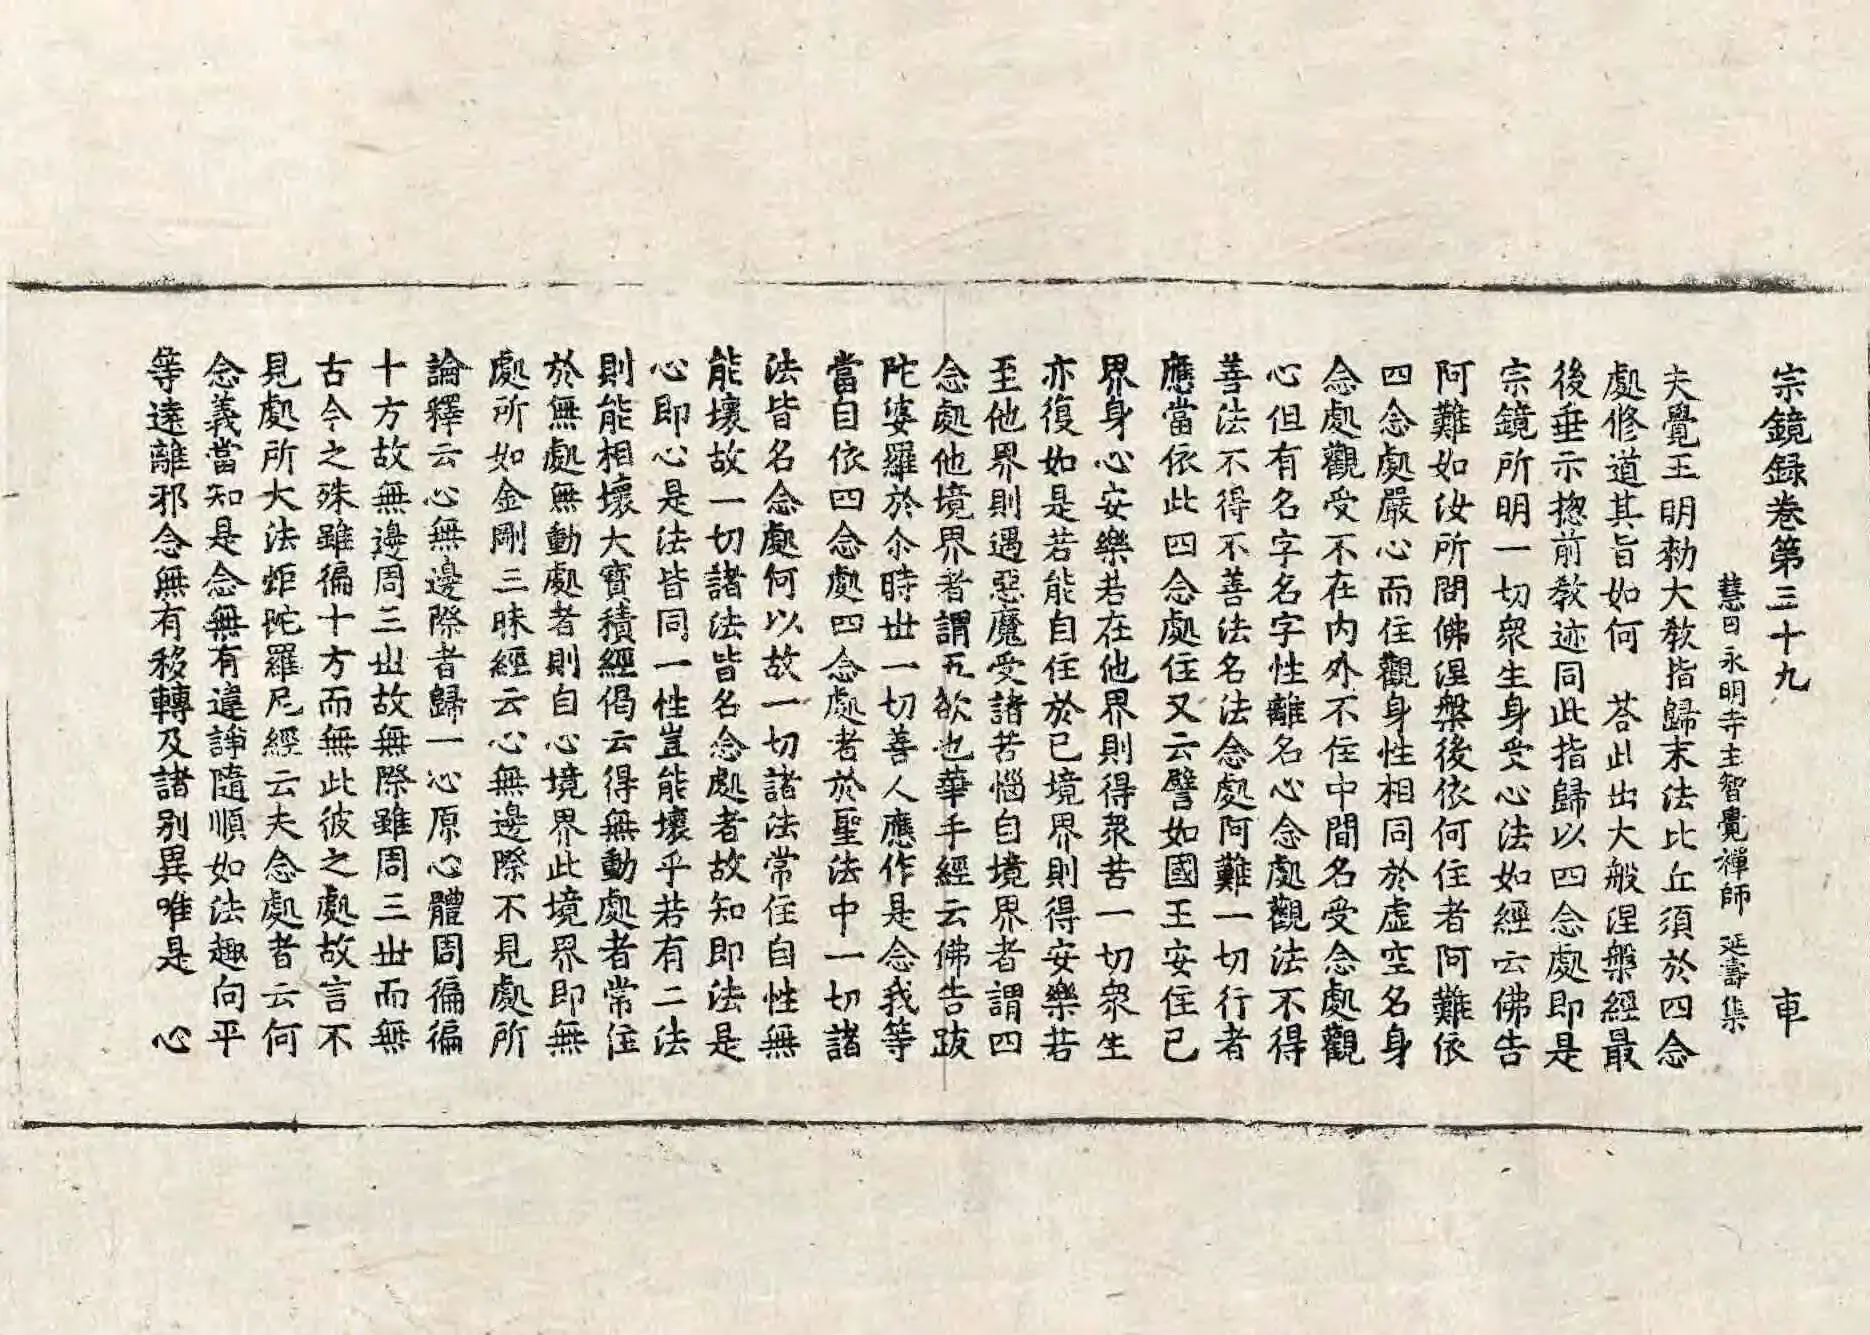 宗鏡録卷第三十九 車
慧日永明寺主智覺禪師 延壽集
夫覺王明勑大教指歸末法比丘須於四念
處修道其旨如何 荅此出大般涅槃經最
後垂示揔前教迹同此指歸以四念處即是
宗鏡所明一切衆生身受心法如經云佛告
阿難如汝所問佛涅槃後依何住者阿難依
四念處嚴心而住觀身性相同於虛空名身
念處觀受不在内外不住中間名受念處觀
心但有名字名字性離名心念處觀法不得
善法不得不善法名法念處阿難一切行者
應當依此四念處住又云譬如國王安住己
界身心安樂若在他界則得衆苦一切衆生
亦復如是若能自住於己境界則得安樂若
至他界則遇惡魔受諸苦惱自境界者謂四
念處他境界者謂五欲也華手經云佛告跋
陀婆羅於尒時世一切善人應作是念我等
當自依四念處四念處者於聖法中一切諸
法皆名念處何以故一切諸法常住自性無
能壞故一切諸法皆名念處者故知即法是
心即心是法皆同一性豈能壞乎若有二法
則能相壞大寶積經偈云得無動處者常住
於無處無動處者則自心境界此境界即無
處所如金剛三昧經云心無邊際不見處所
論釋云心無邊際者歸一心原心體周徧徧
十方故無邊周三世故無際雖周三世而無
古今之殊雖徧十方而無此彼之處故言不
見處所大法炬陀羅尼經云夫念處者云何
念義當知是念無有違諍隨順如法趣向平
等遠離邪念無有移轉及諸别異唯是 心